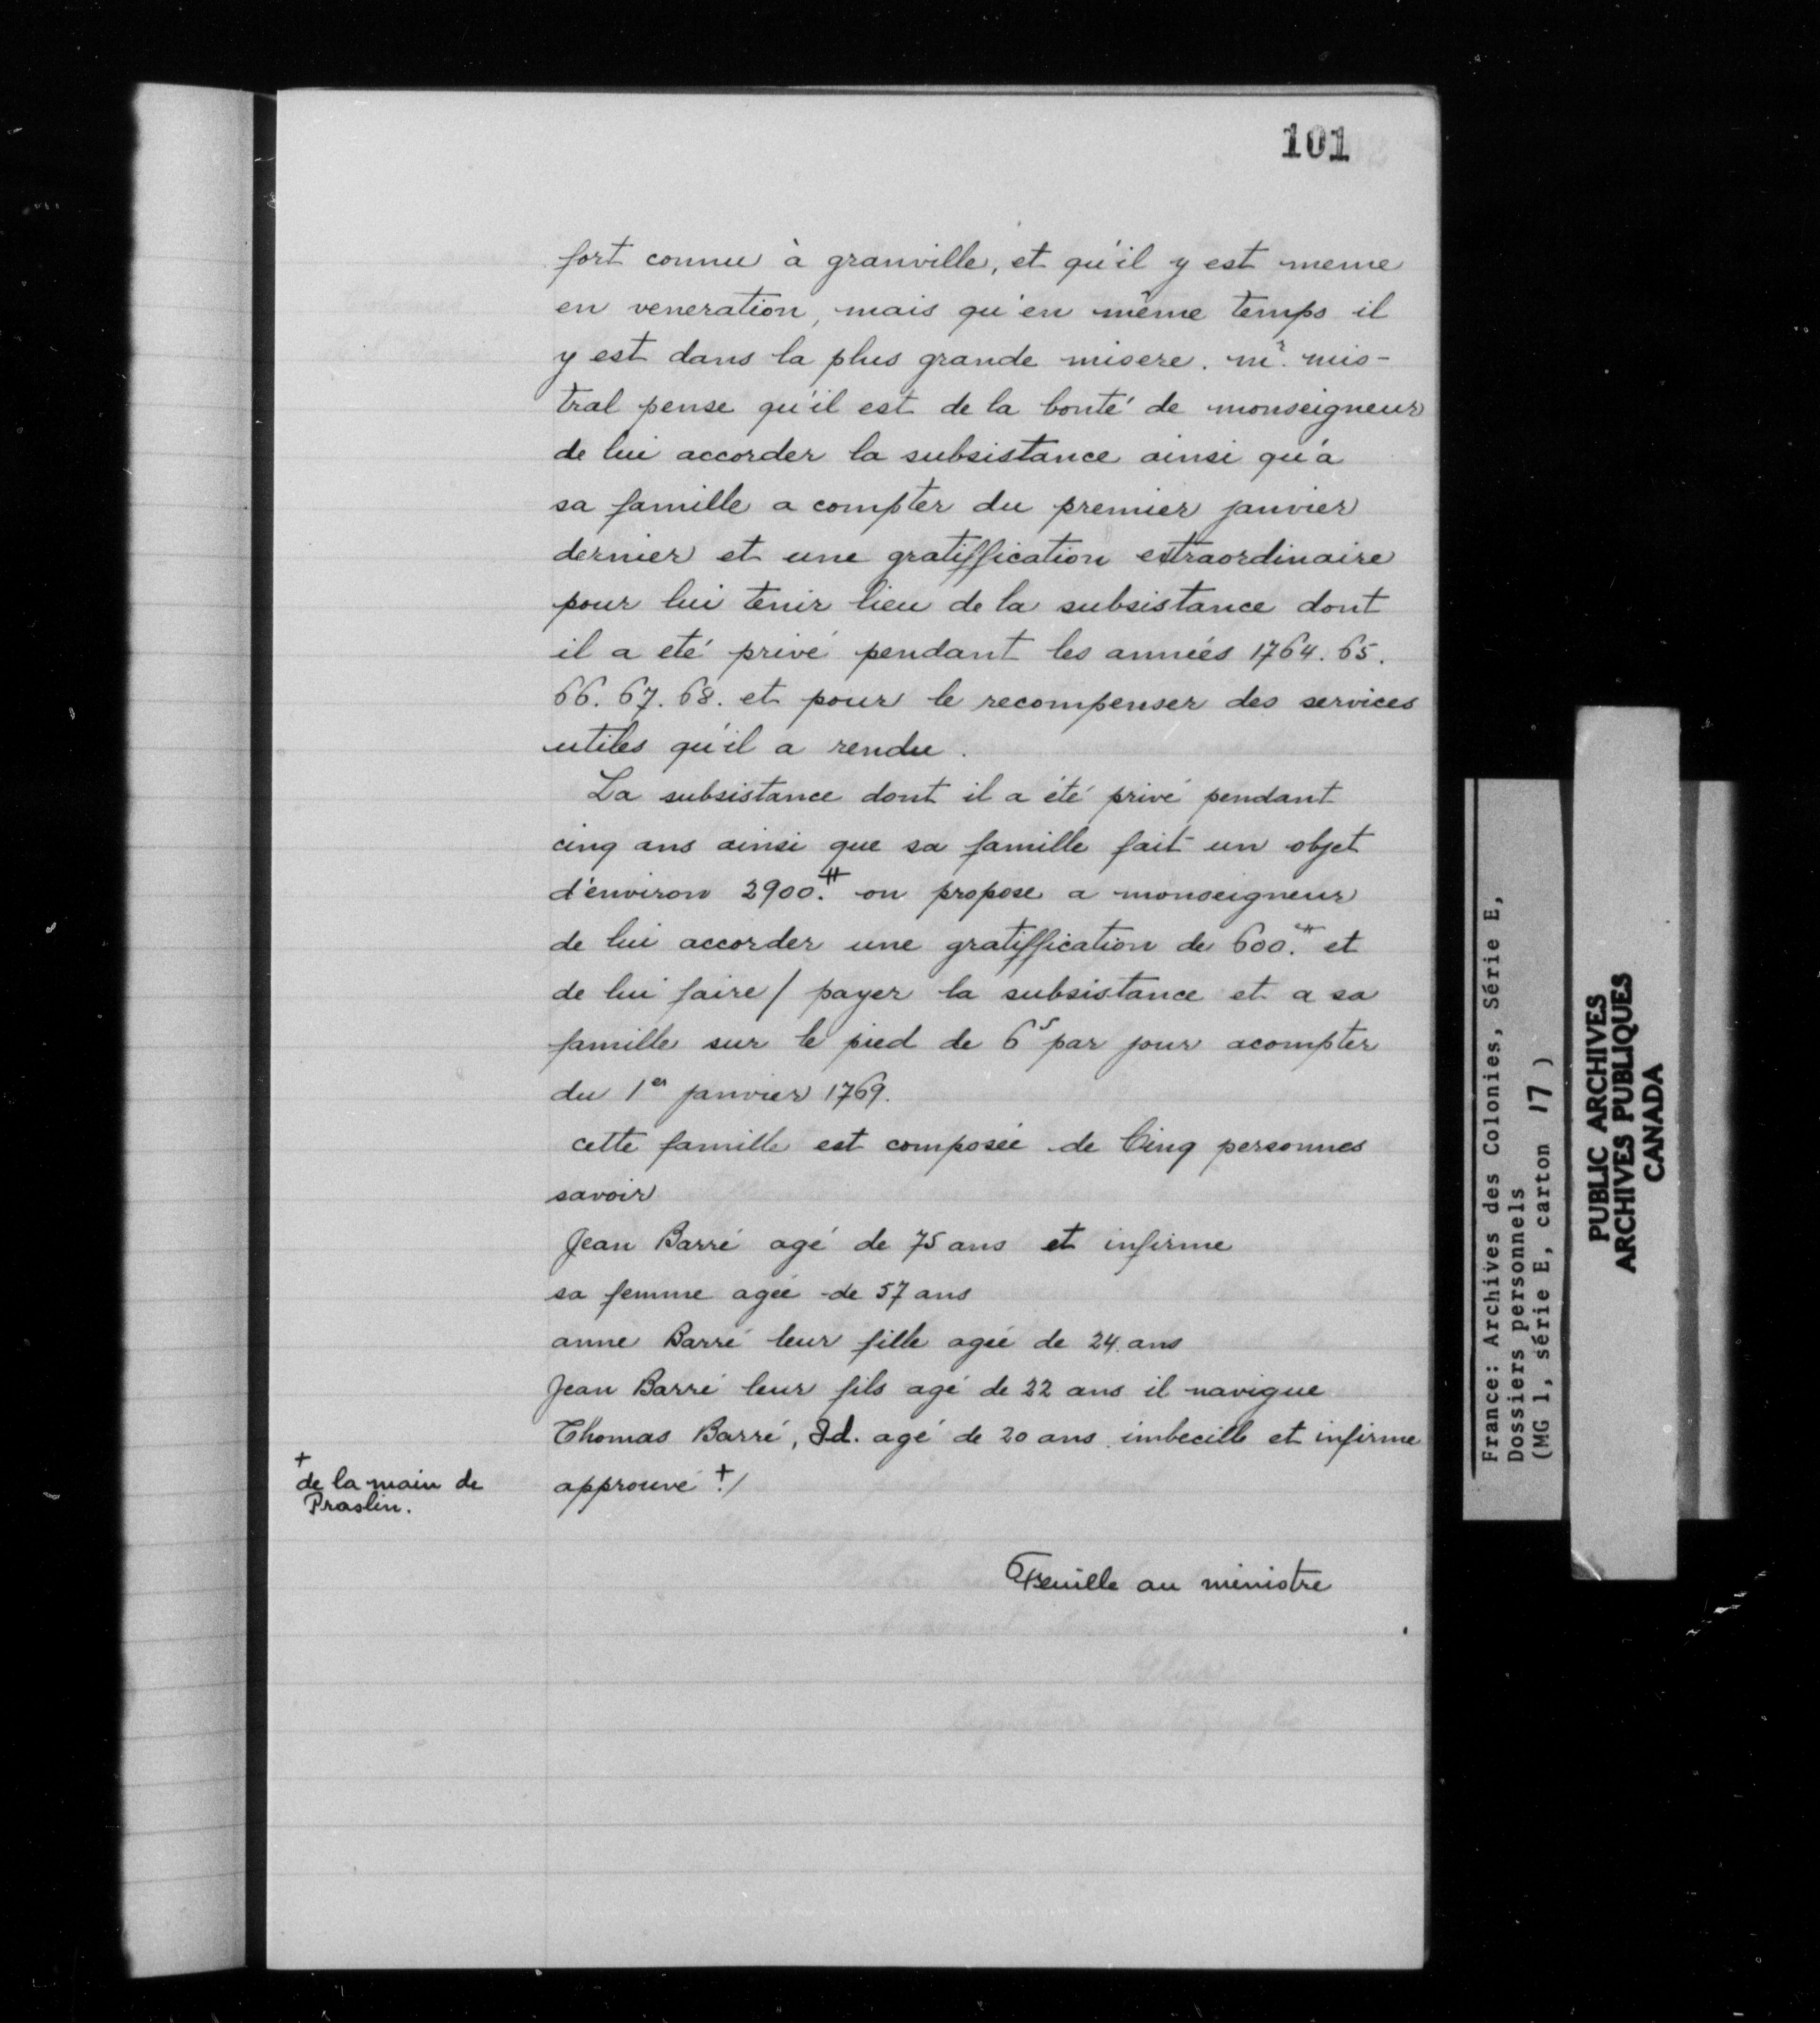 101
fort connu à granville, et qu'il y est meme
en veneration, mais qu'en même temps il
y est dans la plus grande misere. mr. mis-
tral pense qu'il est de la bonté de monseigneur
de lui accorder la subsistance ainsi qu'à
sa famille a compter du premier janvier
dernier et une gratiffication extraordinaire
pour lui tenir lieu de la subsistance dont
il a eté privé pendant les années 1764. 65.
66. 67. 68. et pour le recompenser des services
utiles qu'il a rendu.
La subsistance dont il a été privé pendant
cinq ans ainsi que sa famille fait un objet
d'environ 2900.# on propose a monseigneur
de lui accorder une gratiffication de 600.# et
de lui faire/ payer la subsistance et a sa
famille sur le pied de 6s par jour acompter
du 1er janvier 1769.
cette famille est composée de Cinq personnes
savoir
Jean Barré agé de 75 ans et infirme
sa femme agée de 57 ans
anne Barré leur fille agée de 24. ans
Jean Barré leur fils agé de 22 ans il navigue
Thomas Barré, Id. agé de 20 ans imbecille et infirme
approuvé +./
+
de la main de
Praslin.
Feuille au ministre
France: Archives des Colonies, Série E,
Dossiers personnels
(MG 1, série E, carton 17 )
PUBLIC ARCHIVES
ARCHIVES PUBLIQUES
CANADA